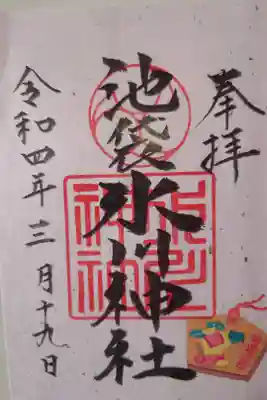 奉拝
池袋氷川神社
令和四年三月十九日